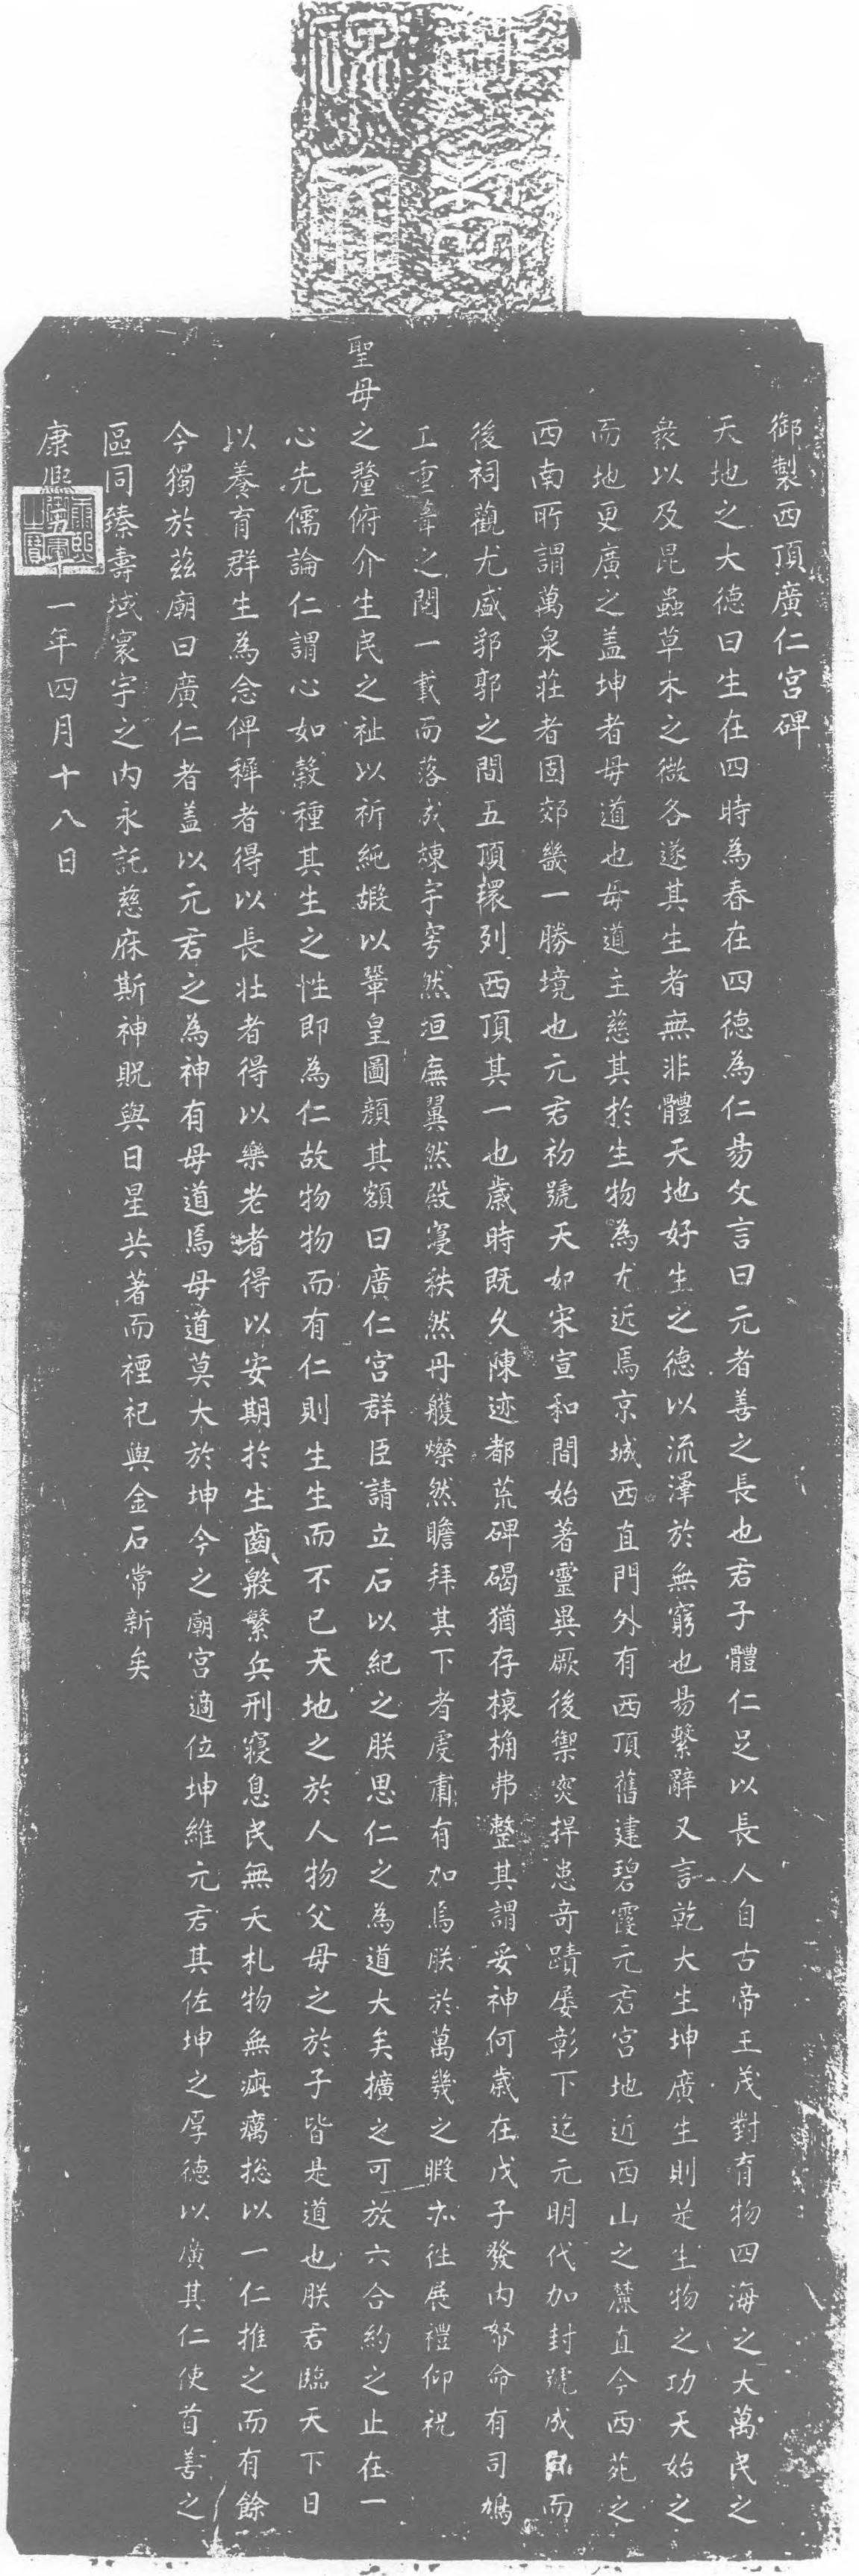 御製西頂廣仁宫碑
天地之大德曰生在四時為春在四德為仁易文言曰元者善之長也君子體仁足以長人自古帝王茂對育物四海之大萬民之
衆以及昆蟲草木之微各遂其生者無非體天地好生之德以流澤於無窮也易繫辭又言乾大生坤廣生則是生物之功天始之
而地更廣之蓋坤者母道也母道主慈其於生物為尤近焉京城西直門外有西頂舊建碧霞元君宮地近西山之麓直今西苑之
西南所謂萬泉莊者固郊畿一勝境也元君初號天妃宋宣和間始著靈異厥後禦災捍患奇蹟屢彰下迄元明代加封號成而
後祠觀尤盛郛郭之間五頂環列西頂其一也歲時既久陳迹都荒碑碣猶存榱桷弗整其謂妥神何歲在戊子發內帑命有司鳩
工重葺之閱一載而落成棟宇穹然垣廡翼然殿寑秩然丹艧燦然瞻拜其下者虔肅有加焉朕於萬幾之暇亦往展禮仰祝
聖母之釐俯介生民之祉以祈純嘏以鞏皇圖顏其額曰廣仁宮群臣請立石以紀之朕思仁之為道大矣擴之可放六合約之止在一
心先儒論仁謂心如穀種其生之性即為仁故物物而有仁則生生而不已天地之於人物父母之於子皆是道也朕君臨天下日
以養育群生為念俾穉者得以長壯者得以樂老者得以安期於生齒殷繁兵刑寢息民無夭札物無疵癘總以一仁推之而有餘
今獨於茲廟曰廣仁者蓋以元君之為神有母道焉母道莫大於坤今之廟宮適位坤維元君其佐坤之厚德以廣其仁使首善之
區同臻壽域寰宇之內永託慈庥斯神貺與日星共著而禋祀與金石常新矣
康熙 一年四月十八日